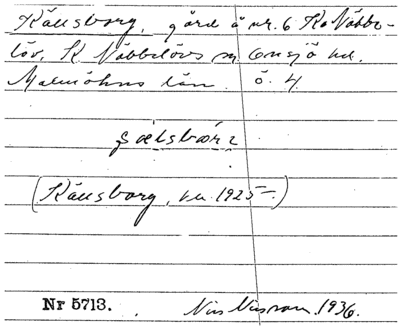 Källsborg, gård å nr. 6 K. Näbbe-
löv, K. Näbbelövs sn Onsjö hd.
Malmöhus län. ö. 4.
(Källsborg, va. 1925-.)
Nr 5713.
Nils Nilsson. 1936.